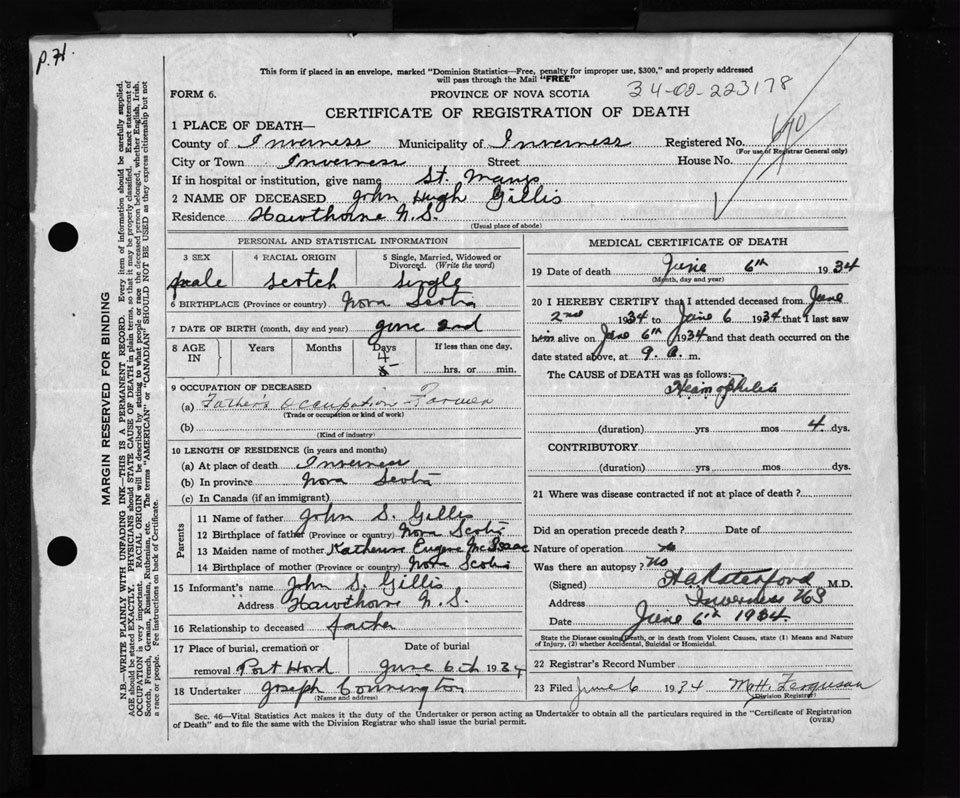 P.H.
This form if placed in an envelope, marked "Dominion Statistics—Free, penalty for improper use, $300," and properly addressed
will pass through the Mail "FREE"
34-02-223178
FORM 6.
PROVINCE OF NOVA SCOTIA
CERTIFICATE OF REGISTRATION OF DEATH
1 PLACE OF DEATH—
County of Inverness Municipality of Inverness Registered No.
(For use of Registrar General only)
City or Town Inverness Street House No.
If in hospital or institution, give name St. Marys
2 NAME OF DECEASED John Hugh Gillis
Residence Hawthorne N.S.
(Usual place of abode)
PERSONAL AND STATISTICAL INFORMATION
3 SEX 4 RACIAL ORIGIN 5 Single, Married, Widowed or Divorced. (Write the word)
male Scotch Single
6 BIRTHPLACE (Province or country) Nova Scotia
7 DATE OF BIRTH (month, day and year) June 2nd
8 AGE IN Years Months Days If less than one day,
4
hrs. or min.
9 OCCUPATION OF DECEASED
(a) Father's Occupation - Farmer
(Trade or occupation or kind of work)
(b)
(Kind of industry)
10 LENGTH OF RESIDENCE (in years and months)
(a) At place of death Inverness
(b) In province Nova Scotia
(c) In Canada (if an immigrant)
Parents
11 Name of father John S. Gillis
12 Birthplace of father (Province or country) Nova Scotia
13 Maiden name of mother Katherine Eugene McIsaac
14 Birthplace of mother (Province or country) Nova Scotia
15 Informant's name John S. Gillis
Address Hawthorne N.S.
16 Relationship to deceased father
17 Place of burial, cremation or Date of burial
removal Port Hood June 6th 1934
18 Undertaker Joseph Connington
(Name and address)
MEDICAL CERTIFICATE OF DEATH
19 Date of death June 6th 1934
(Month, day and year)
20 I HEREBY CERTIFY that I attended deceased from June
2nd 1934 to June 6 1934 that I last saw
him alive on June 6th 1934 and that death occurred on the
date stated above, at 9. a. m.
The CAUSE OF DEATH was as follows:—
(duration) yrs mos 4 dys.
CONTRIBUTORY
(duration) yrs mos dys.
21 Where was disease contracted if not at place of death?
Did an operation precede death? Date of
Nature of operation
Was there an autopsy? No
(Signed) M.D.
Address Inverness NS
Date June 6th 1934
State the Disease causing Death, or in death from Violent Causes, state (1) Means and Nature
of Injury, (2) whether Accidental, Suicidal or Homicidal.
22 Registrar's Record Number
23 Filed June 6 1934 M.H. Ferguson
(Division Registrar)
Sec. 46—Vital Statistics Act makes it the duty of the Undertaker or person acting as Undertaker to obtain all the particulars required in the "Certificate of Registration
of Death" and to file the same with the Division Registrar who shall issue the burial permit.
(OVER)
MARGIN RESERVED FOR BINDING
N.B.—WRITE PLAINLY WITH UNFADING INK—THIS IS A PERMANENT RECORD. Every item of information should be carefully supplied.
AGE should be stated EXACTLY. PHYSICIANS should STATE CAUSE OF DEATH in plain terms, so that it may be properly classified. Exact statement of
OCCUPATION is very important. RACIAL ORIGIN will be described by stating to what people or race the deceased person belonged, whether English, Irish,
Scotch, French, German, Russian, Ruthenian, etc. The terms "AMERICAN" or "CANADIAN" SHOULD NOT BE USED as they express citizenship but not
a race or people. Fee instructions on back of Certificate.